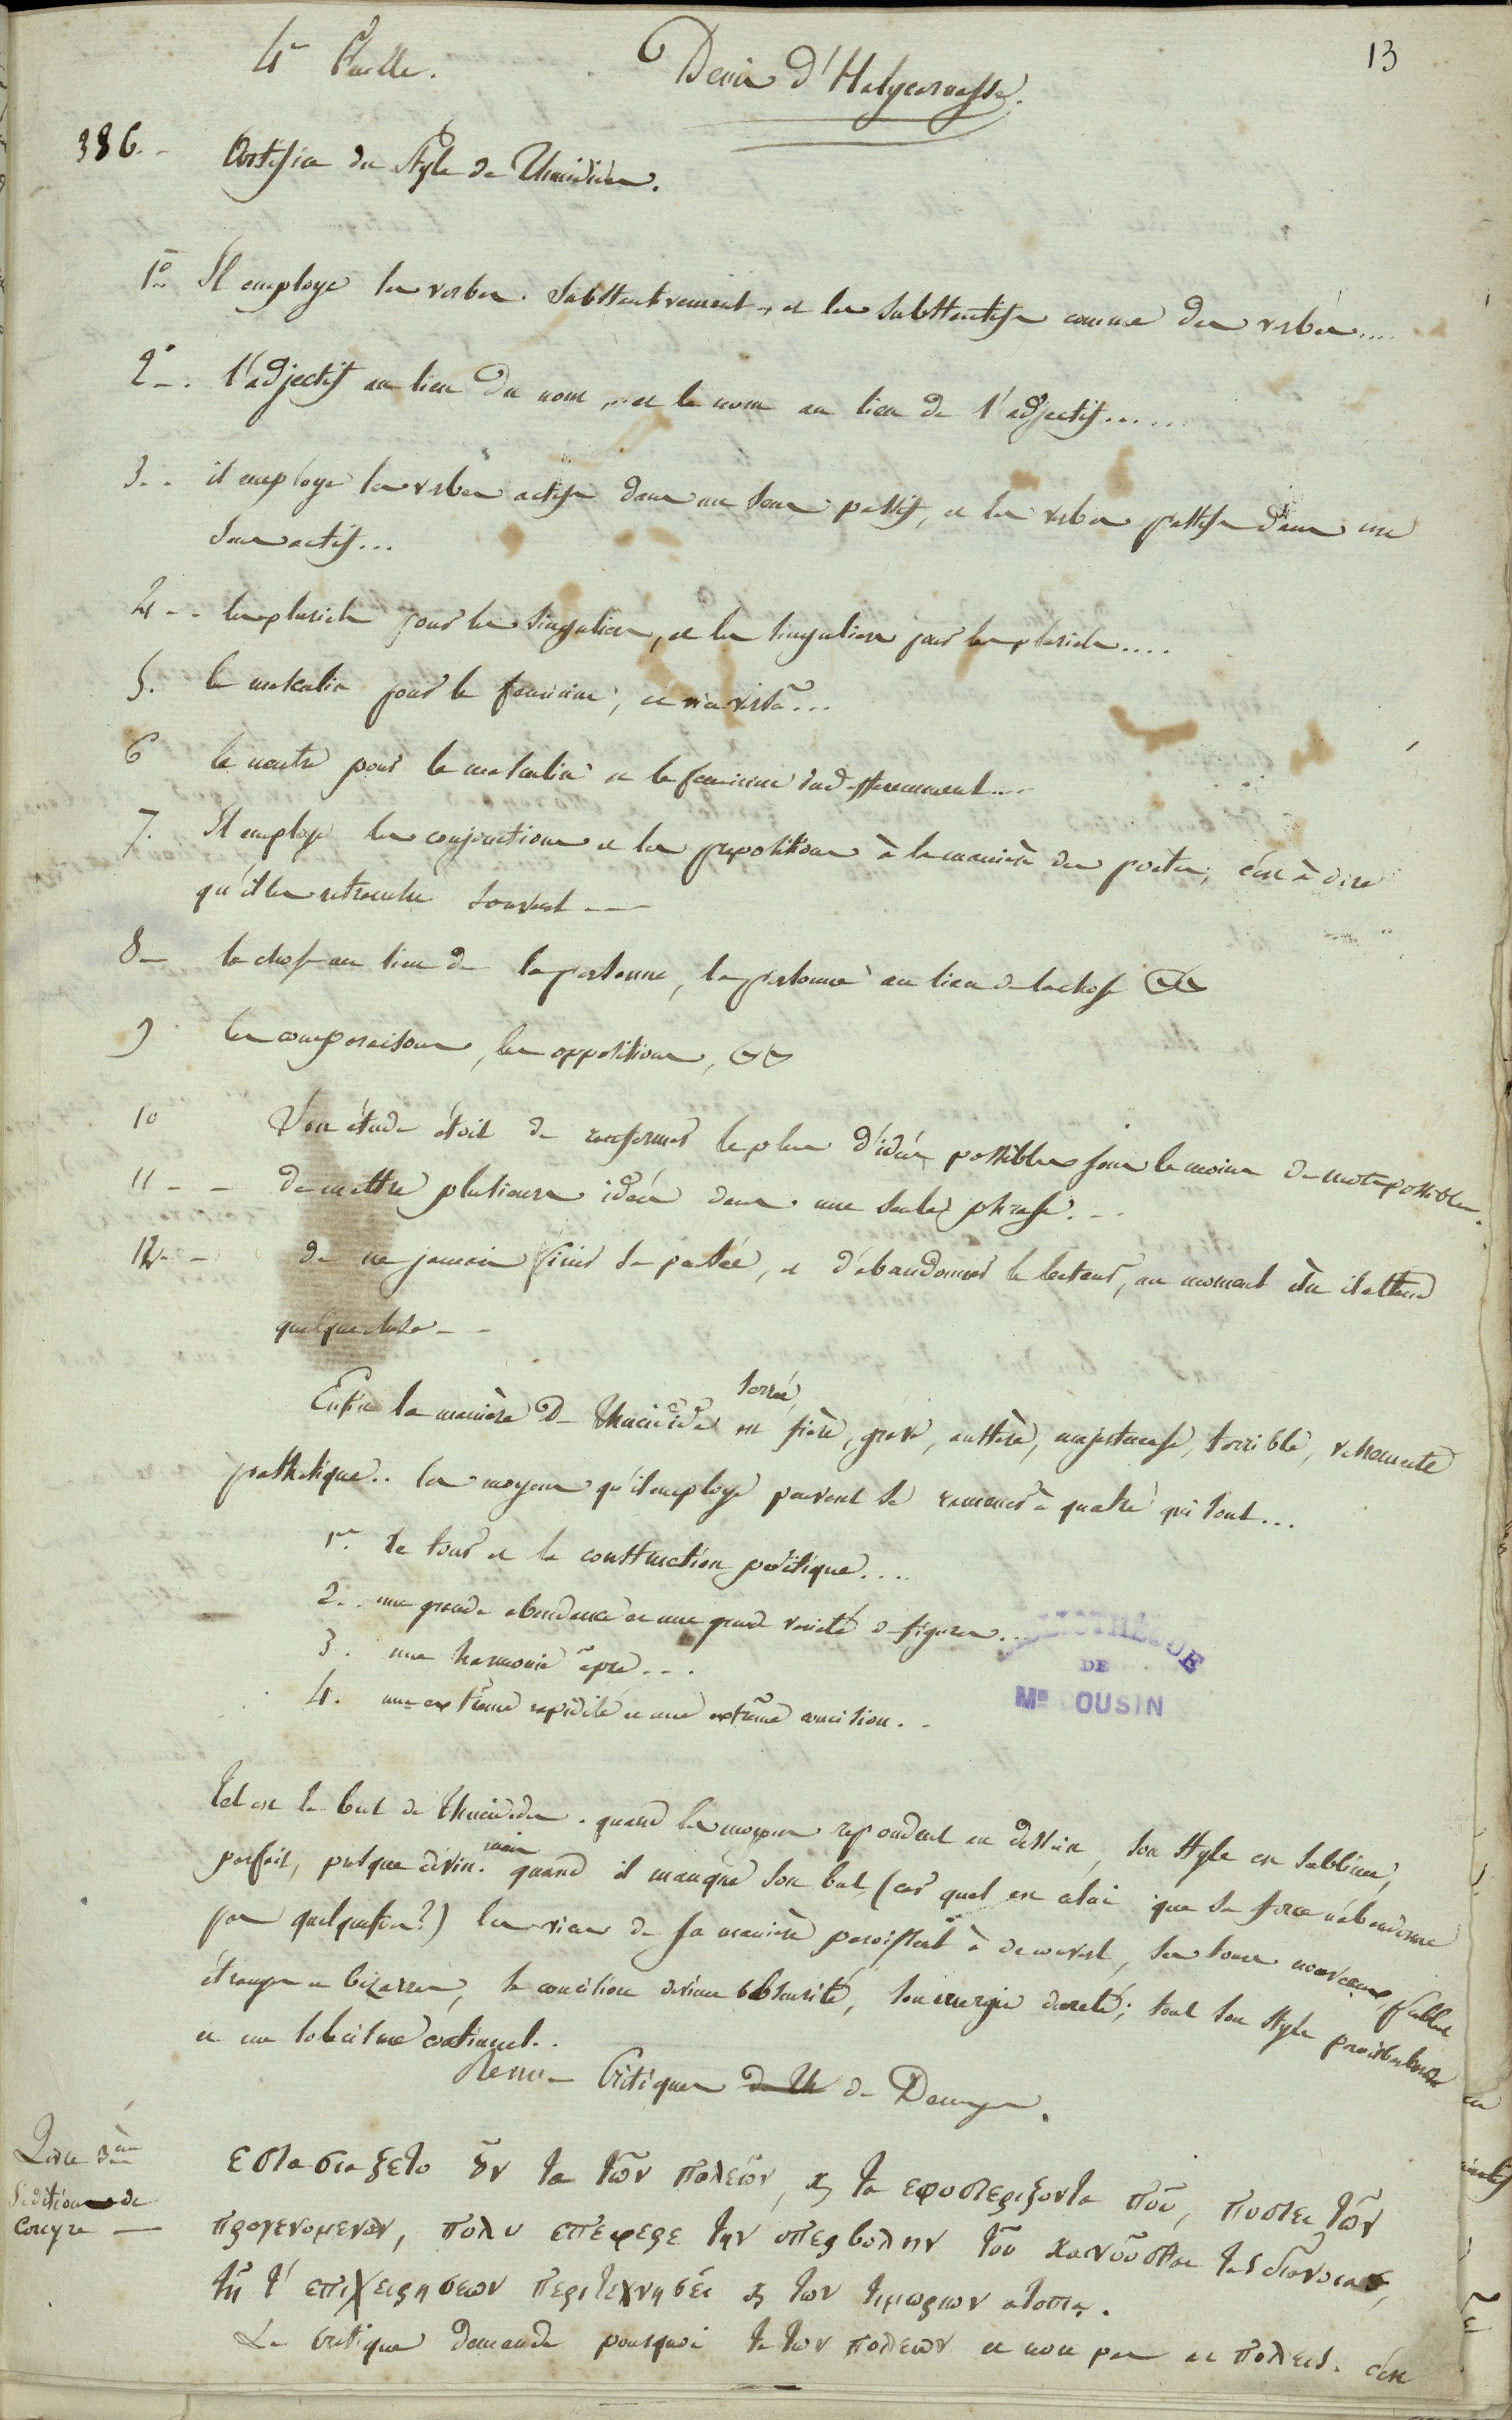 4e feuille. Denis d'Halycarnasse. 13
386. Artifice du Style de Thucidide.
1º Il employe les verbes substantivement, et les substantifs comme des verbes....
2º. l'adjectif au lieu du nom, et le nom au lieu de l'adjectif......
3.. il employe les verbes actifs dans un sens passif, et les verbes passifs dans un
sens actif...
4.. les pluriels pour les singuliers, et les singuliers pour les pluriels....
5. le masculin pour le feminin, et vice versâ...
6 le neutre pour le masculin et le feminin indifferemment...
7. Il employe les conjonctions et les prepositions à la manière des poetes, c'est à dire
qu'il les retranche souvent ——
8— la chose au lieu de la personne, la personne au lieu de la chose
9 les comparaisons, les oppositions,
10 Son étude étoit de renfermer le plus d'idées possibles sous le moins de mots possibles.
11 — — de mettre plusieurs idées dans une seule phrase. —
12 — de ne jamais finir sa pensée, et d'abandonner le lecteur, au moment où il attend
quelque chose — —
serrée
Enfin la manière de Thucidide est fière, grave, austère, majestueuse, terrible, vehemente
pathetique.. les moyens qu'il employe peuvent se ramener à quatre qui sont...
1er. le tour et la construction poëtique....
2.. une grande abondance et une grande varieté de figures...
3. une harmonie âpre...
4. une extrême rapidité et une extrême concision..
BIBLIOTHÈQUE
DE
Mr COUSIN
Tel est le but de Thucidide. quand les moyens repondent au dessein, son style est sublime,
parfait, presque divin. mais quand il manque son but (car quel est celui que sa force n'abandonne
pas quelquefois?) les vices de sa manière paroissent à decouvert, ses tours nouveaux semblent
étranges et bizarres, sa concision devient obscurité, son energie dureté; tout son style
et un solecisme continuel..
Critiques de Th de Denys.
Livre 3eme
Seditions de
Corcyre —
εστασιαζετο ουν τα των πολεων, και τα εφυστεριζοντα που, πυστει των
προγενομενων, πολυ επεφερε την υπερβολην του καινουσθαι τας διανοιας,
τῃ τ' επιχειρησεων περιτεχνησει και των τιμωριων ατοπιᾳ.
Le critique demande pourquoi τα των πολεων et non pas αι πολεις. c'est